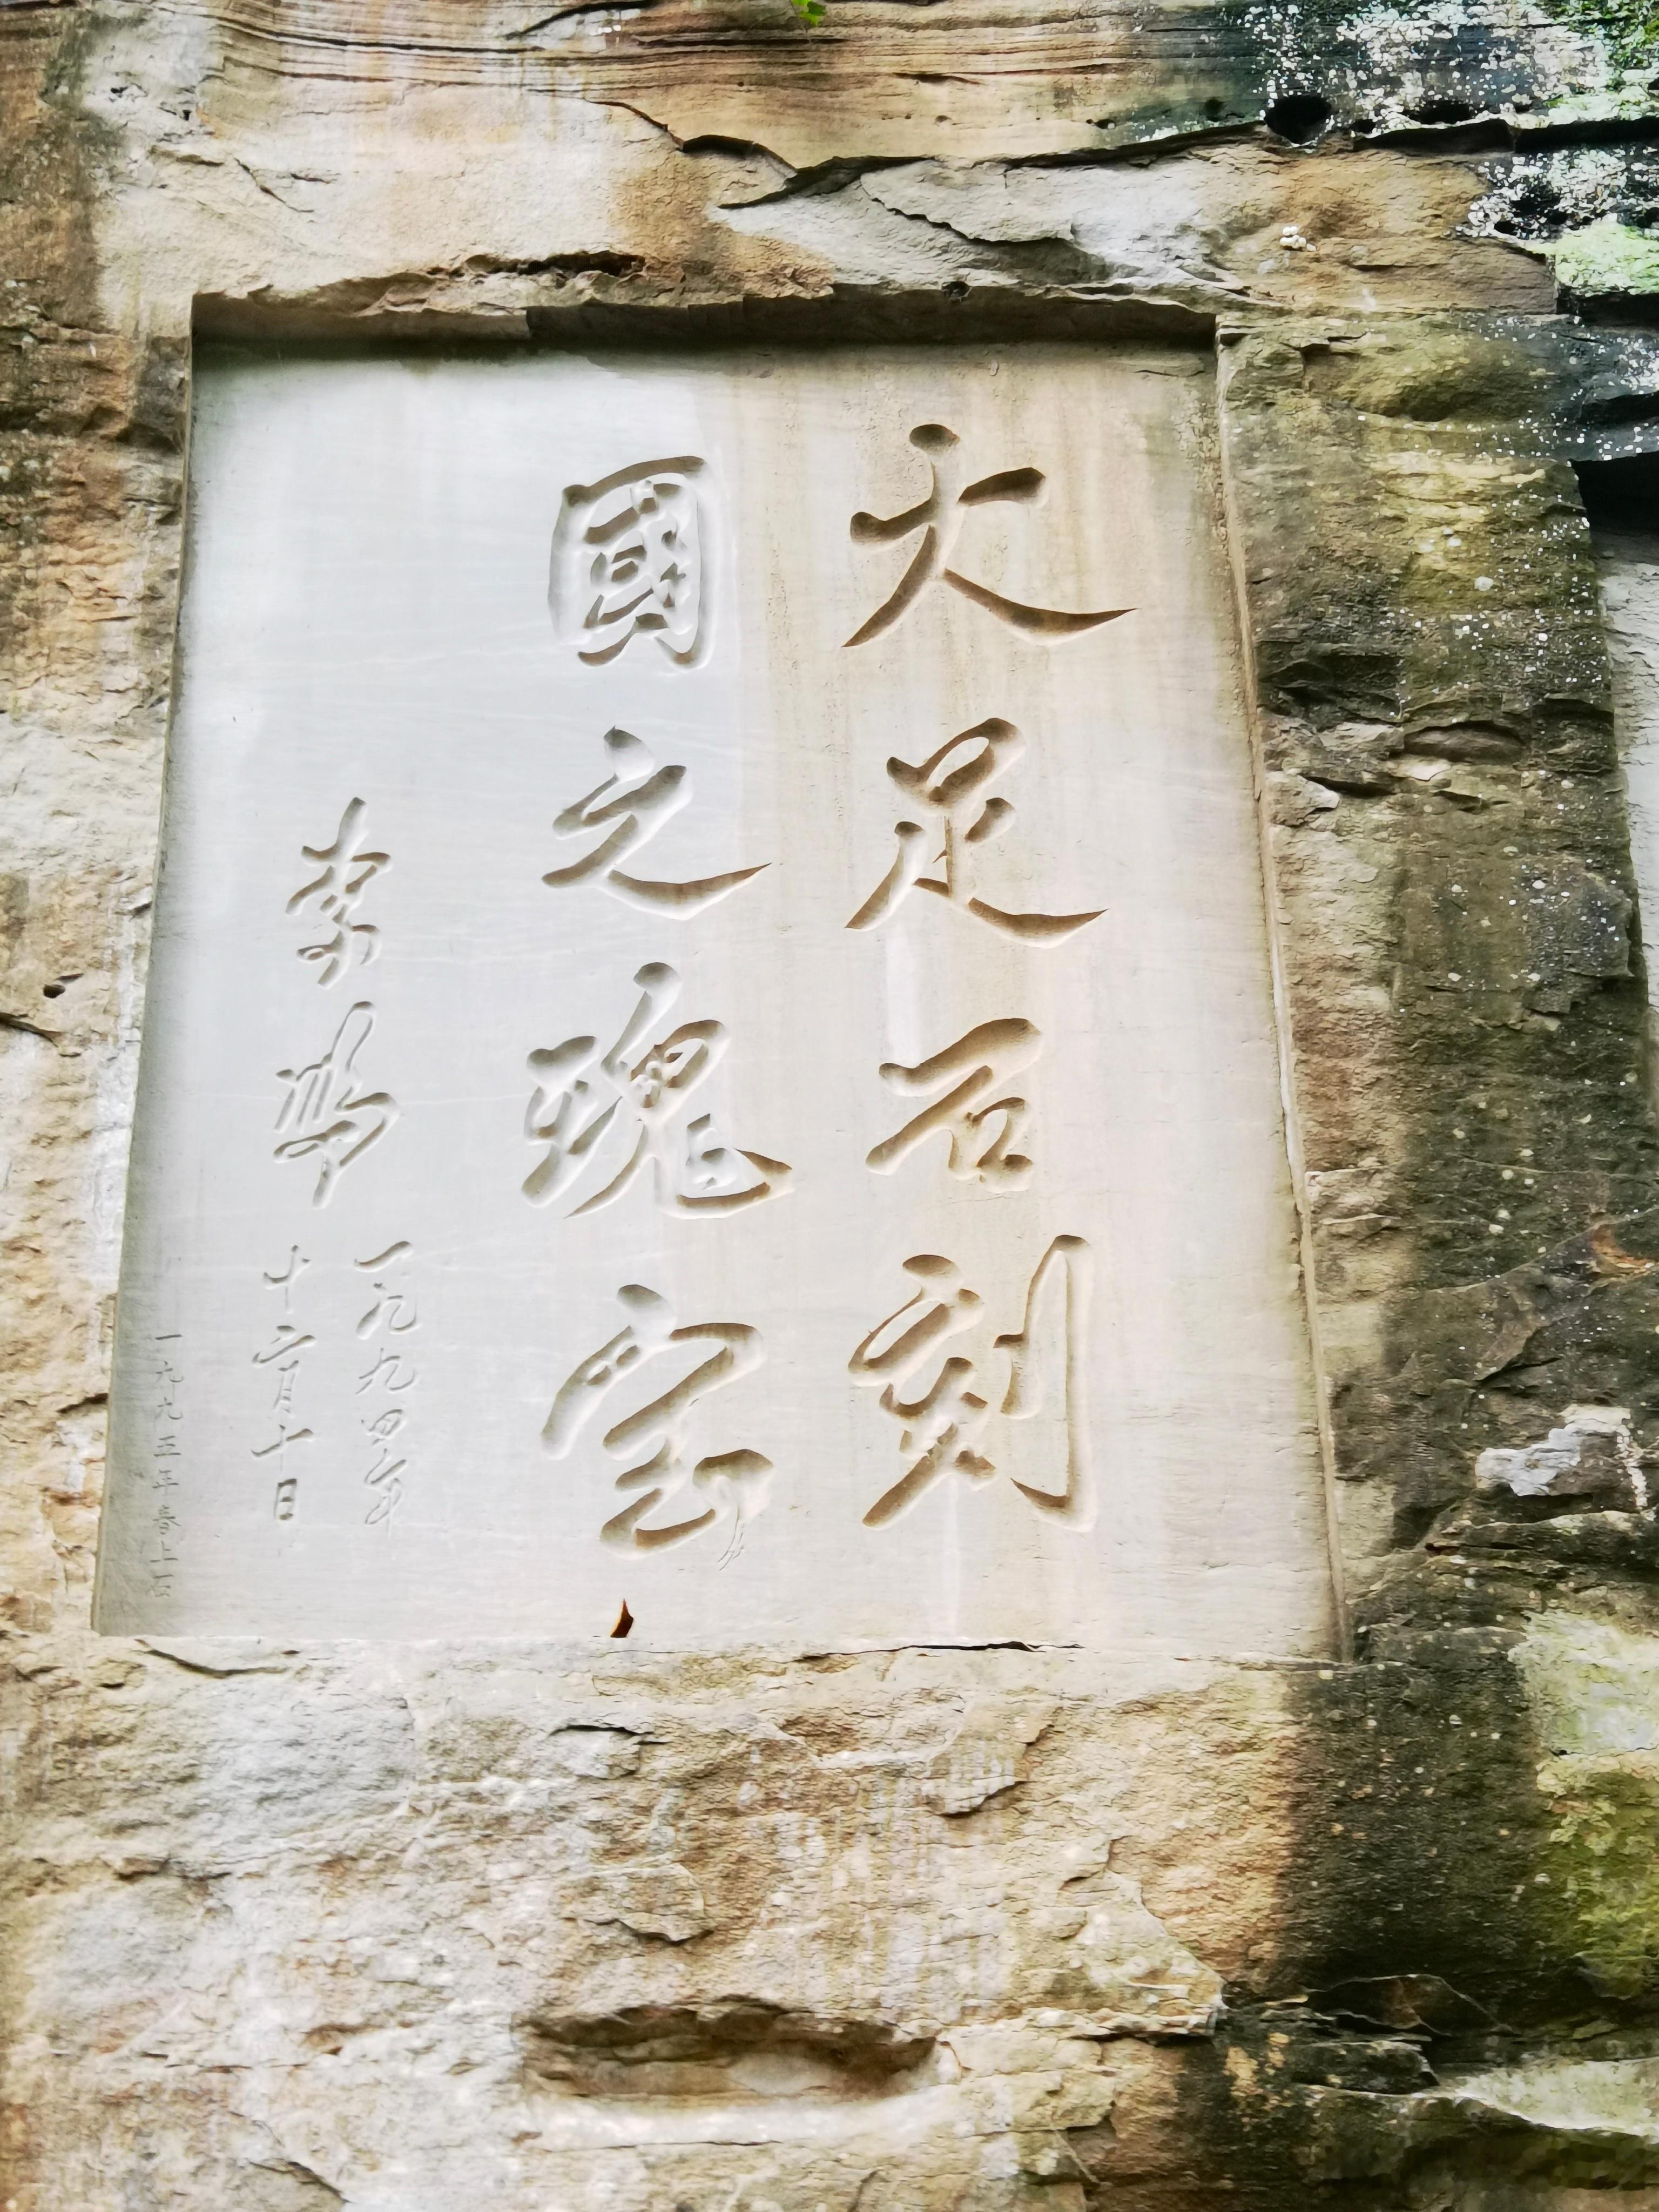 大足石刻
國之瑰宝
一九九四年
十二月十日
一九九五年春上石